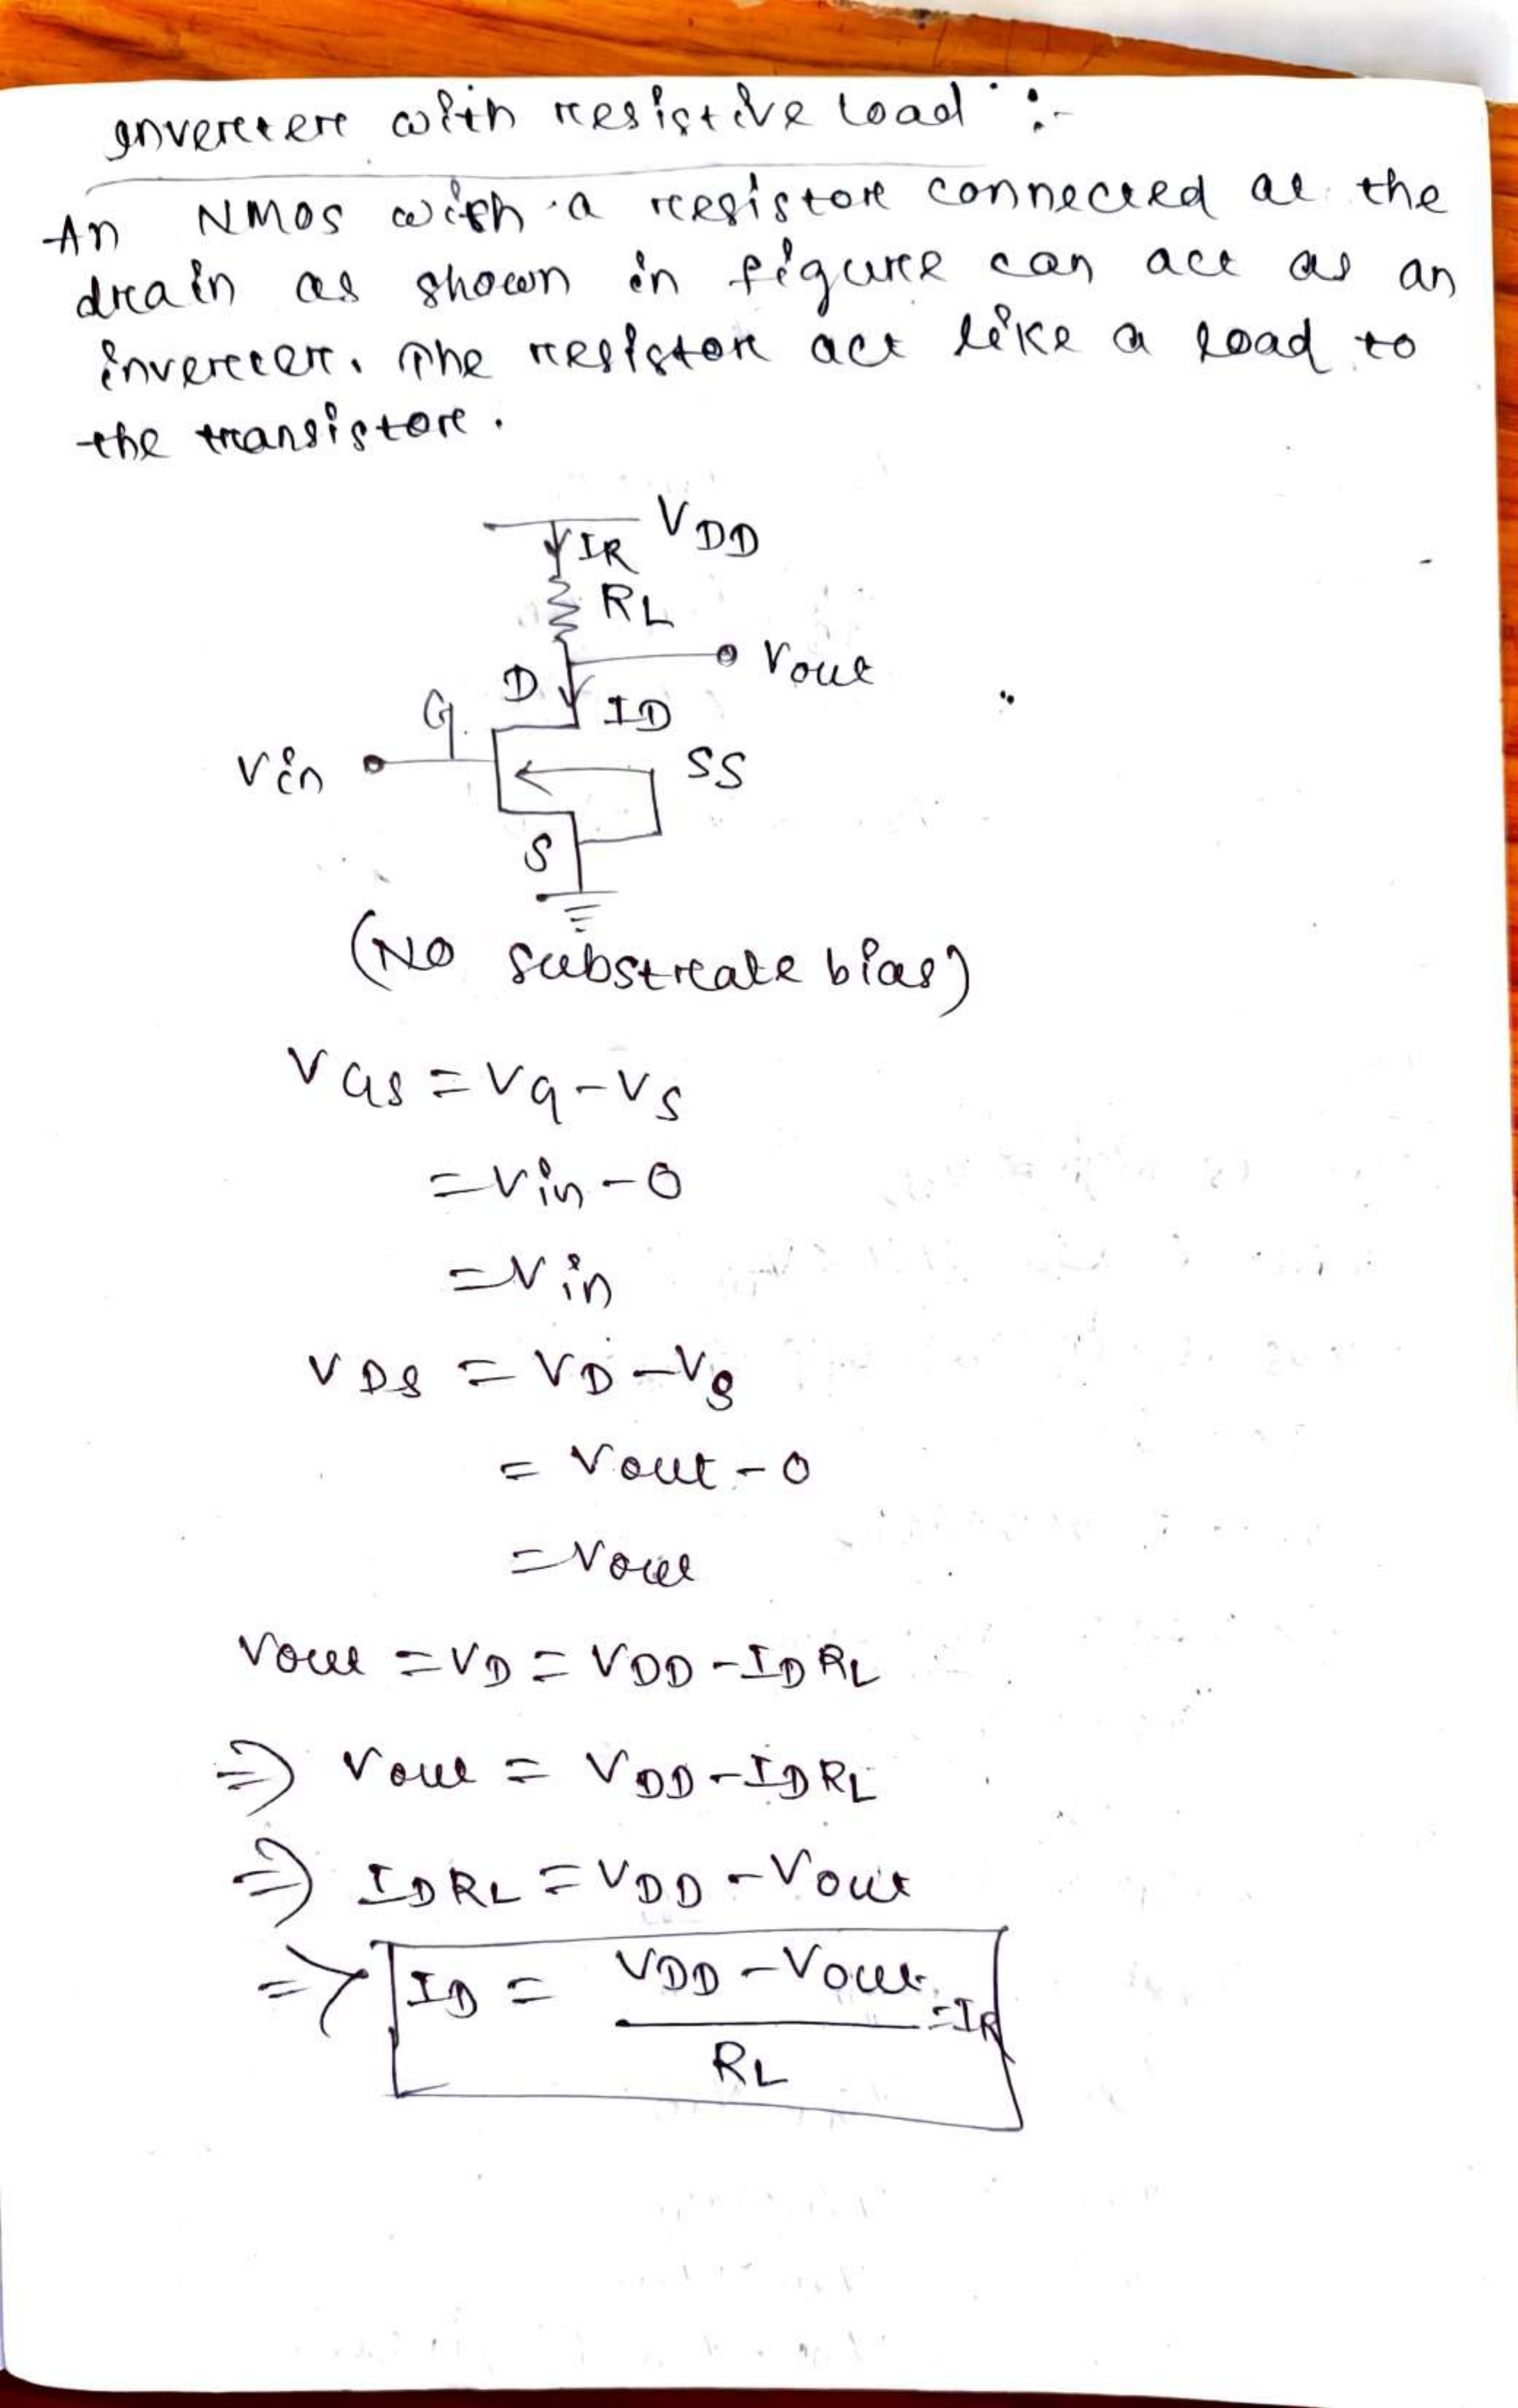 Inverter with resistive load :-
An NMOS with a resistor connected at the
drain as shown in figure can act as an
inverter. The resistor act like a load to
the transistor.
VDD
IR
RL
Vout
D
ID
G
Vin
SS
S
(No substrate bias)
VGS = VG - VS
= Vin - 0
= Vin
VDS = VD - VS
= Vout - 0
= Vout
Vout = VD = VDD - IDRL
⇒ Vout = VDD - IDRL
⇒ IDRL = VDD - Vout
⇒ ID = VDD - Vout / RL = IR